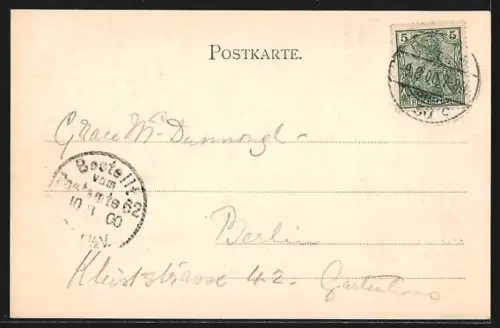 POSTKARTE.
5 5
Grace Mc
Bestellt
vom
Postamte 62
10 00
Berlin
Kleiststrasse 42. Gartenhaus